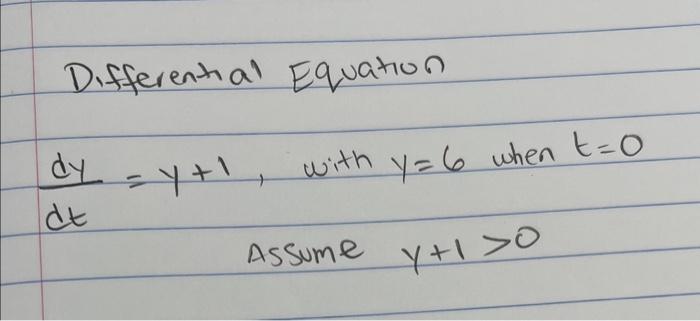 Differential Equation
dy/dt = y+1, with y=6 when t=0
Assume y+1>0